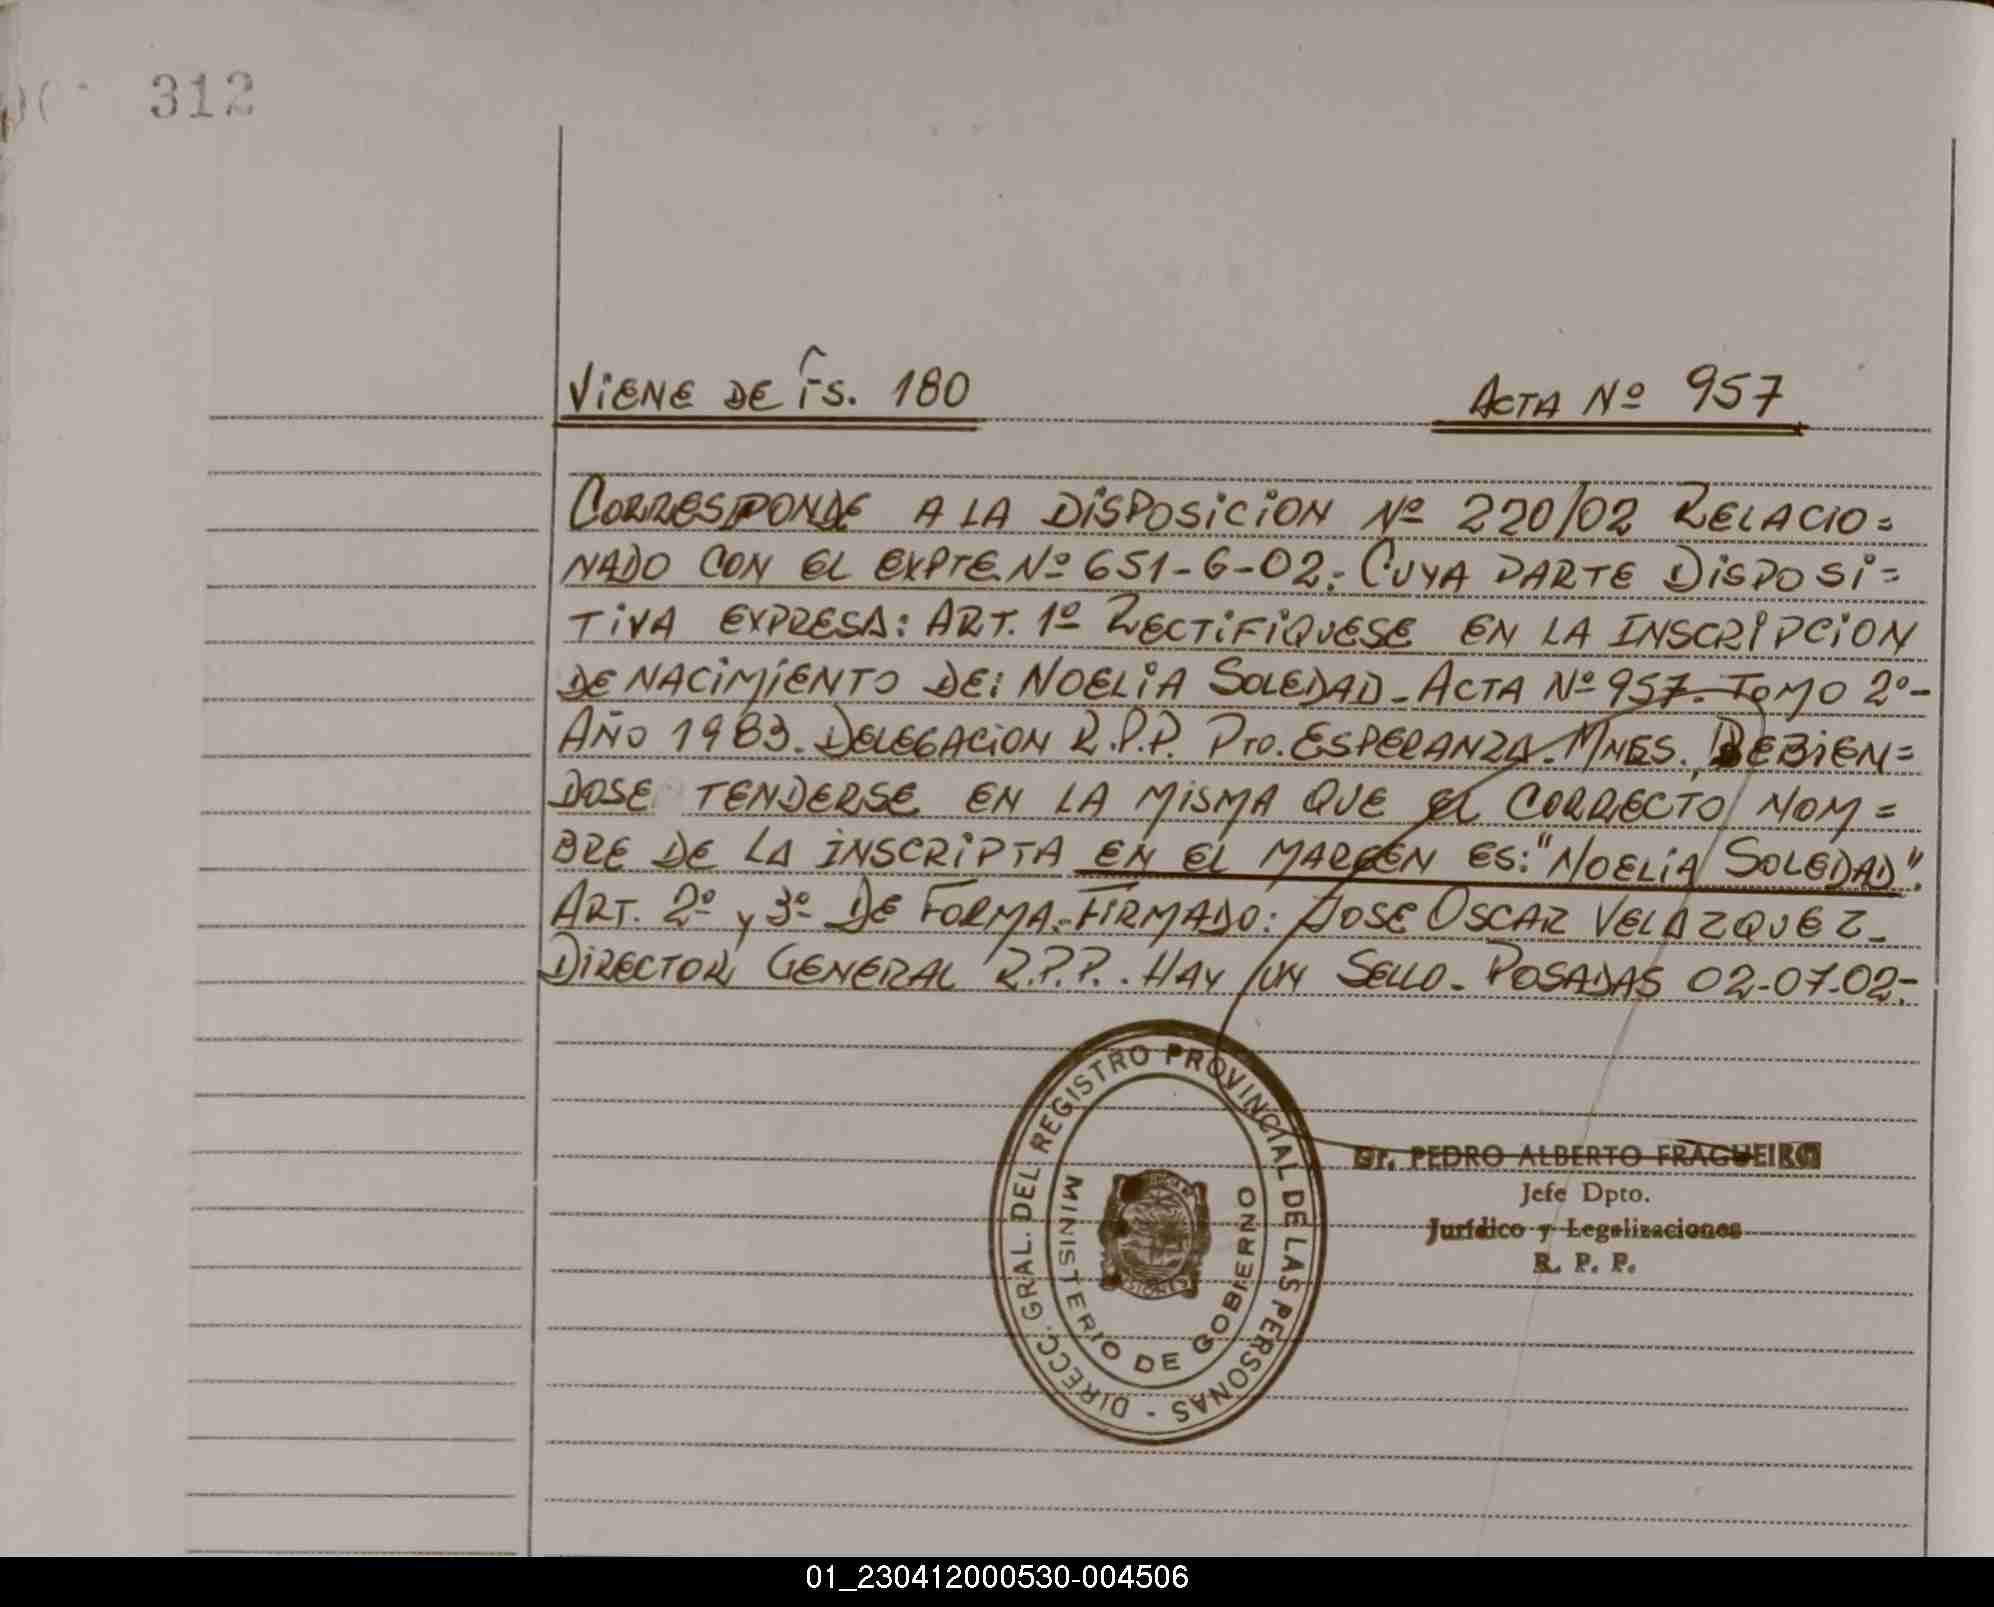 312
VIENE DE FS. 180 ACTA Nº 957
CORRESPONDE A LA DISPOSICION Nº 220/02 RELACIO=
NADO CON EL EXPTE Nº 651-G-02.- CUYA PARTE DISPOSI=
TIVA EXPRESA: ART. 1º RECTIFIQUESE EN LA INSCRIPCION
DE NACIMIENTO DE: NOELIA SOLEDAD - ACTA Nº 957. TOMO 2º-
AÑO 1983. DELEGACION R.P.P. Pto. ESPERANZA. MNES., DEBIEN=
DOSE TENDERSE EN LA MISMA QUE EL CORRECTO NOM=
BRE DE LA INSCRIPTA EN EL MARGEN ES: "NOELIA SOLEDAD".
ART. 2º y 3º DE FORMA.- FIRMADO: JOSE OSCAR VELAZQUEZ-
DIRECTOR GENERAL R.P.P. . HAY UN SELLO - POSADAS 02-07-02.-
DIRECC. GRAL. DEL REGISTRO PROVINCIAL DE LAS PERSONAS -
MINISTERIO DE GOBIERNO
Dr. PEDRO ALBERTO FRAGUEIRO
Jefe Dpto.
Jurídico y Legalizaciones
R. P. P.
01_230412000530-004506